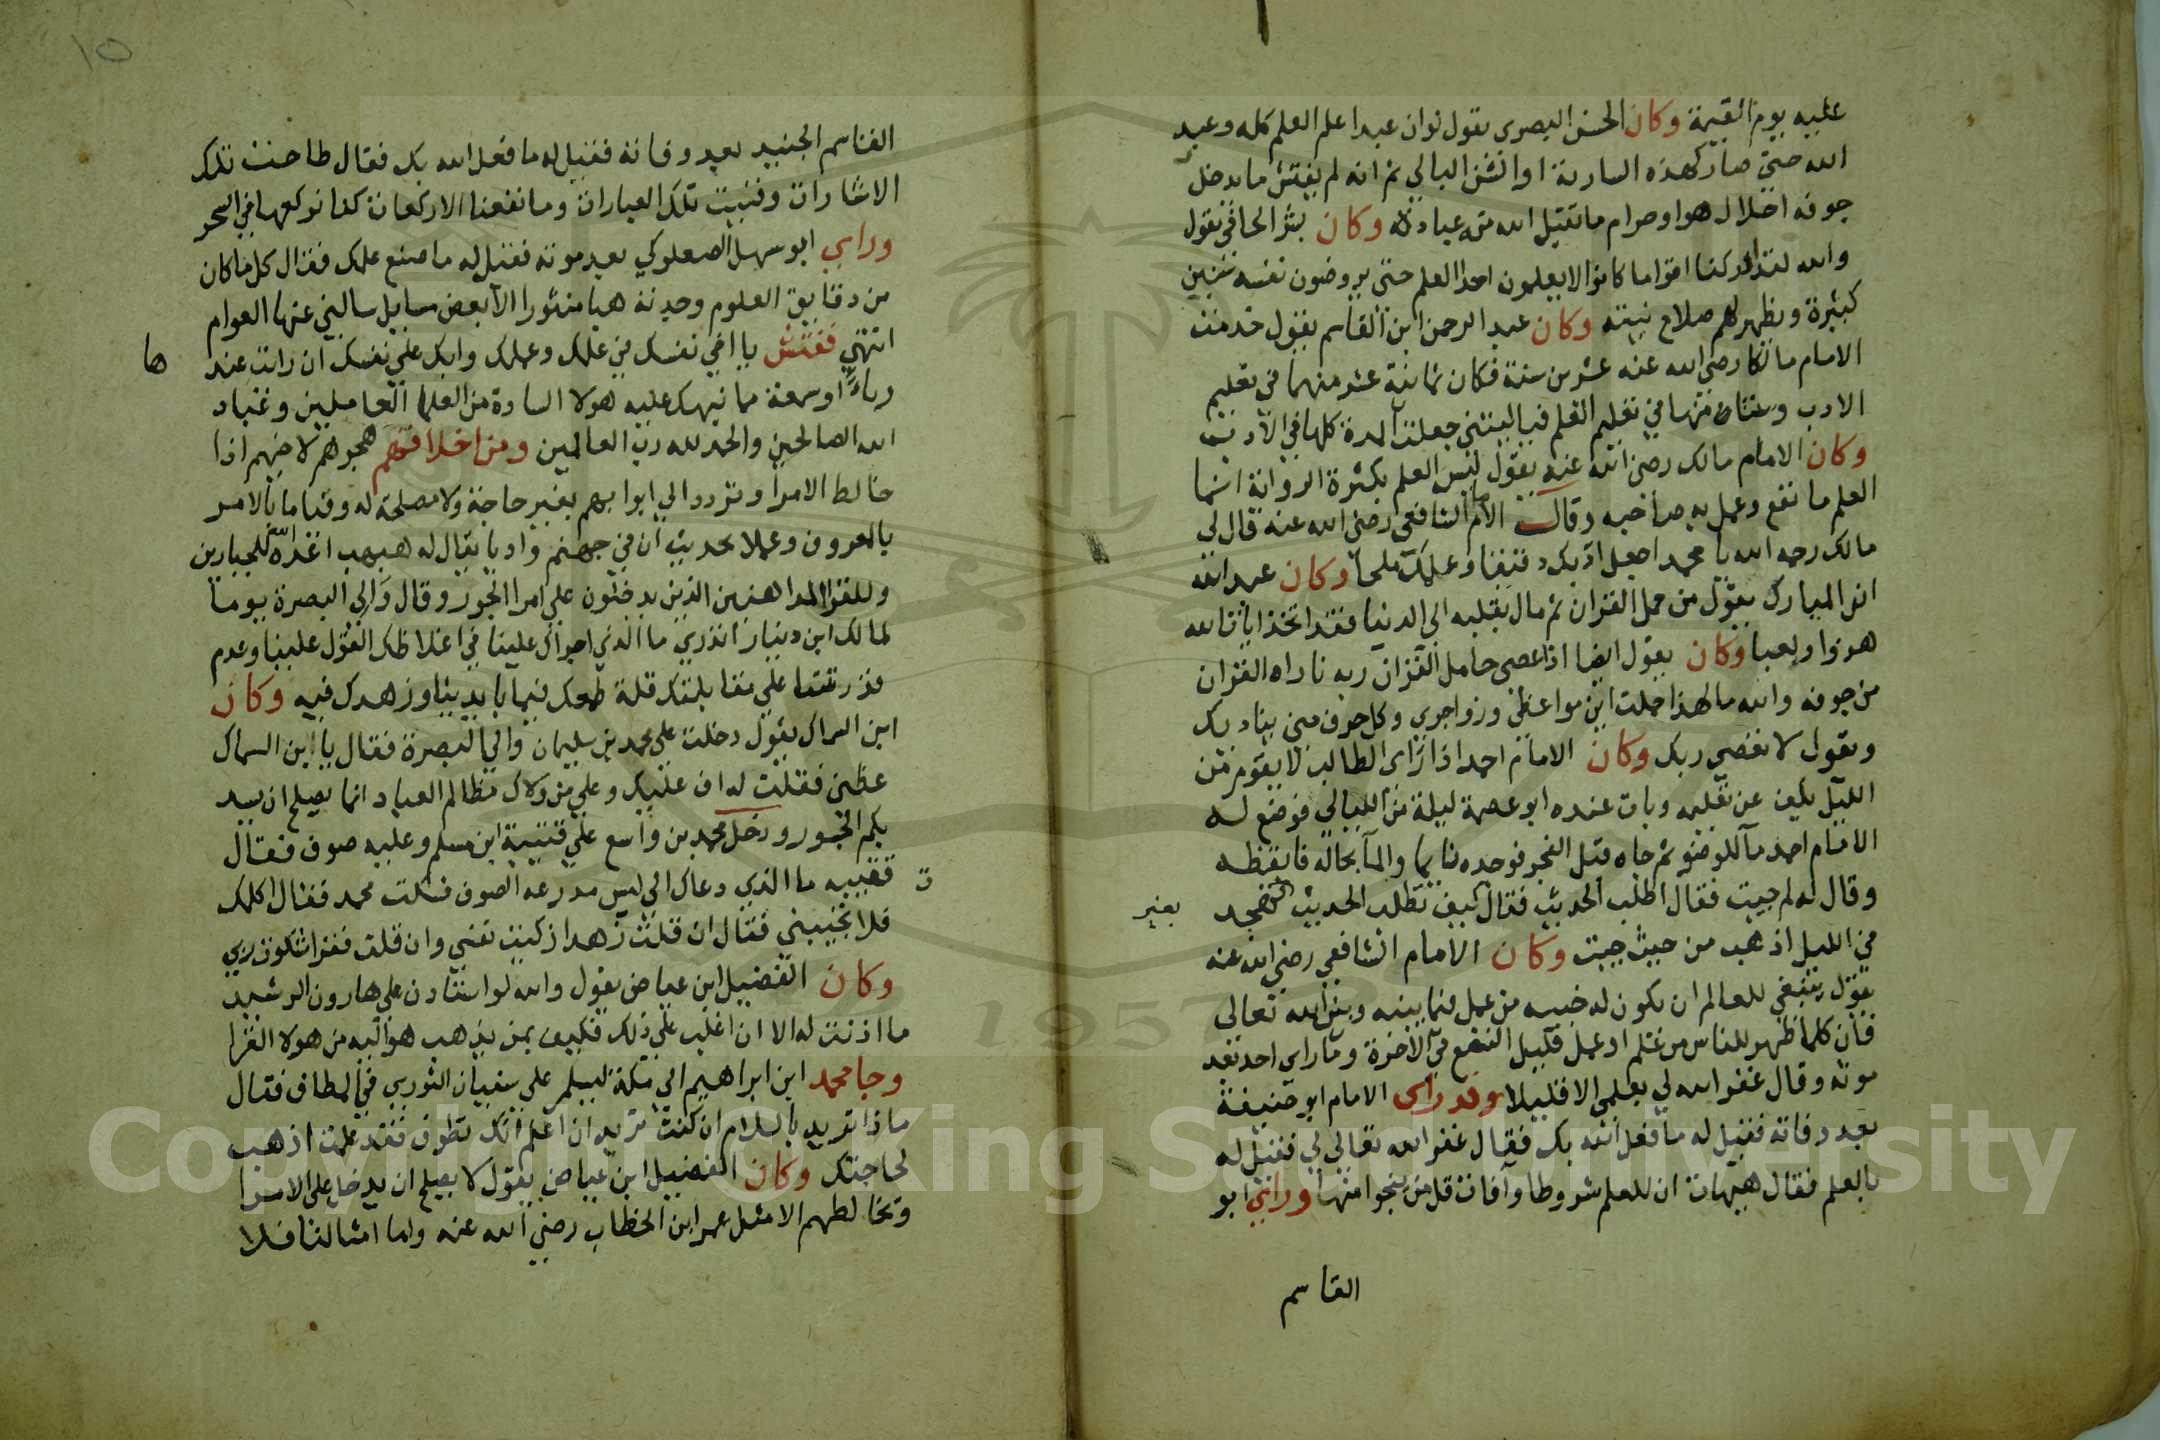 عليه يوم القيمة وكان الحسن البصرى يقول لوان عبدا علم العلم كله وعبد
الله حتى صار كهذه السارية او الشن البالي ثم انه لم يفتش ما يدخل
جوفه احلال هوا وحرام ما تقبل الله منه عبادة وكان بشر الحافى يقول
والله لقد ادركنا اقواما كانوا لا يعلمون احدا العلم حتى يروضون نفسه سنين
كثيرة ويظهر لهم صلاح نيته وكان عبد الرحمن ابن القاسم يقول خدمت
الامام مالكا رضى الله عنه عشرين سنة فكان ثمانية عشر منها في تعليم
الادب وسنتان منها في تعليم العلم فياليتني جعلت المدة كلها في الادب
وكان الامام مالك رضى الله عنه يقول ليس العلم بكثرة الرواية انما
العلم ما نفع وعمل به صاحبه وقال الامام الشافعي رضى الله عنه قال لي
مالك رحمه الله يا محمد اجعل ادبك دقيقا وعلمك ملحا وكان عبد الله
ابن المبارك يقول من حمل القران ثم مال بقلبه الى الدنيا فقد اتخذ ايات الله
هزوا ولعبا وكان يقول ايضا اذا عصى حامل القران ربه ناداه القران
من جوفه والله ما لهذا حملت اين مواعظي وزواجري وكل حرف مني يناديك
ويقول لا تعصي ربك وكان الامام احمد اذا راى الطالب لا يقوم من
الليل يكف عن تعليمه وبات عنده ابو عصمة ليلة من الليالي فوضع له
الامام احمد مآ للوضوء ثم جاه قبل الفجر فوجده نايما والمآ بحاله فايقظه
وقال له لم جيت فقال اطلب الحديث فقال كيف تطلب الحديث تهجد
بغير
في الليل اذهب من حيث جيت وكان الامام الشافعي رضى الله عنه
يقول ينبغي للعالم ان يكون له خبيه من عمل فيما بينه وبين الله تعالى
فان كلما ظهر للناس من علم او عمل قليل النفع في الاخرة وما راى احد بعد
موته وقال غفر الله لي بعلمي الا قليلا وقد راى الامام ابو حنيفة
بعد وفاته فقيل له ما فعل الله بك فقال غفر الله تعالى لي فقيل له
بالعلم فقال هيهات ان للعلم شروطا وآفات قل من ينجوا منها وراى ابو
القاسم
١٥
القاسم الجنيد بعد وفاته فقيل له ما فعل الله بك فقال طاحت تلك
الاشارات وفنيت تلك العبارات وما نفعنا الا ركعات كنا نركعها في السحر
وراي ابو سهل الصعلوكي بعد موته فقيل له ما صنع علمك فقال كل ما كان
من دقايق العلوم وجدته هبا منثورا الا بعض مسايل سالني عنها العوام
انتهي ففتش يا اخي نفسك في علمك وعملك وابك علي نفسك ان رايت عند
ها
رياء او سمعة مما نبهك عليه هولا السادة من العلما العاملين وعباد
الله الصالحين والحمد لله رب العالمين ومن اخلاقهم هجرهم لاخيهم اذا
خالط الامرا وتردد الي ابوابهم بغير حاجة ولا مصلحة له وقياما بالامر
بالمعروف وعملا بحديث ان في جهنم واديا يقال له هبهب اعده الله للجبارين
وللقرا المداهنين الذين يدخلون علي امرا الجور وقال والي البصرة يوما
لمالك ابن دينار اتدري ما الذي اجراك علينا في اغلاظك القول علينا وعدم
قدرتنا علي مقابلتك قلة طمعك فيما بايدينا وزهدك فيه وكان
ابن السماك يقول دخلت علي محمد بن سليمان والي البصرة فقال يا ابن السماك
عظني فقلت له ان عليك وعلي من ولاك مظالم العباد انما يصلح ان يسد
بكم الجسور ودخل محمد بن واسع علي قتيبة ابن مسلم وعليه صوف فقال
قتيبه ما الذي دعاك الي لبس مدرعه الصوف فسكت محمد فقال اكلمك
ت
فلا تجيبني فقال ان قلت زهدا زكيت نفسي وان قلت فقرا شكوت ربي
وكان الفضيل ابن عياض يقول والله لو استاذن علي هارون الرشيد
ما اذنت له الا ان اغلب علي ذلك فكيف بمن يذهب هو اليه من هولا القرا
وجا محمد ابن ابراهيم الي مكة ليسلم علي سفيان الثوري في المطاف فقال
ماذا تريد بالسلام ان كنت تريد ان اعلم انك تطوف فقد علمت اذهب
لحاجتك وكان الفضيل ابن عياض يقول لا يصلح ان يدخل على الامرا
ويخالطهم الا مثل عمر ابن الخطاب رضي الله عنه واما امثالنا فلا
Copyright © King Saud University
1957